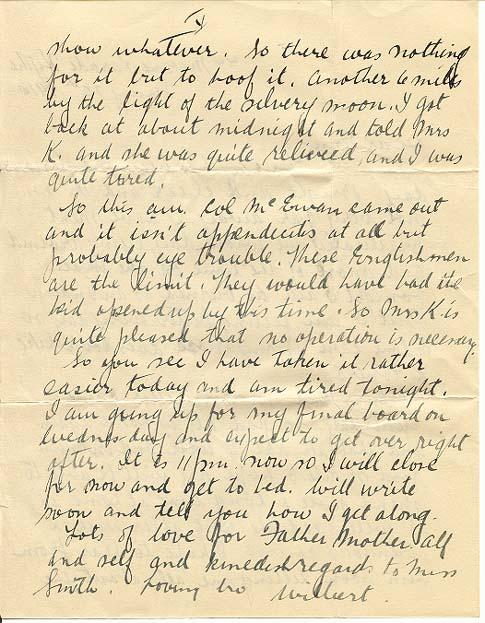 show whatever. So there was nothing
for it but to hoof it. Another 6 miles
by the light of the silvery moon. I got
back at about midnight and told Mrs
K. and she was quite relieved, and I was
quite tired.
So this am. Col McEwan came out
and it isn't appendicitis at all but
probably eye trouble. These Englishmen
are the limit. They would have had the
kid opened up by this time. So Mrs K is
quite pleased that no operation is necessary.
So you see I have taken it rather
easier today and am tired tonight.
I am going up for my final board on
Wednesday and expect to get over right
after. It is 11 pm now so I will close
for now and get to bed. Will write
soon and tell you how I get along.
Lots of love for Father Mother all
and self and kindest regards to Miss
Smith. Loving bro Wilbert.